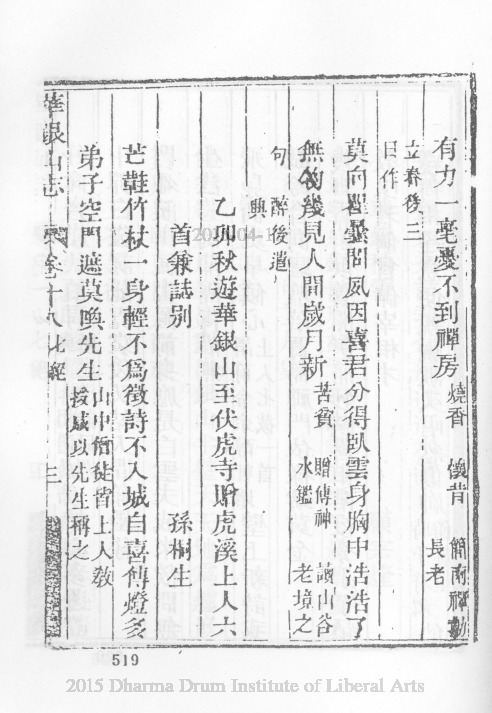 有力一毫憂不到禪房 燒香 懷昔 簡耐禪勤長老
立春後三日作
莫向瞿曇問夙因喜君分得臥雲身胸中浩浩了
無物幾見人間歲月新 苦賓 贈傳神水鑑 讀山谷老境之句
醉後遣興
乙卯秋遊華銀山至伏虎寺贈虎溪上人六
首兼誌別
孫桐生
芒鞋竹杖一身輕不為徵詩不入城自喜傳燈多
弟子空門遮莫喚先生 山中僧徒皆上人教授咸以先生稱之
華銀山志 卷十八 三
519
2015 Dharma Drum Institute of Liberal Arts